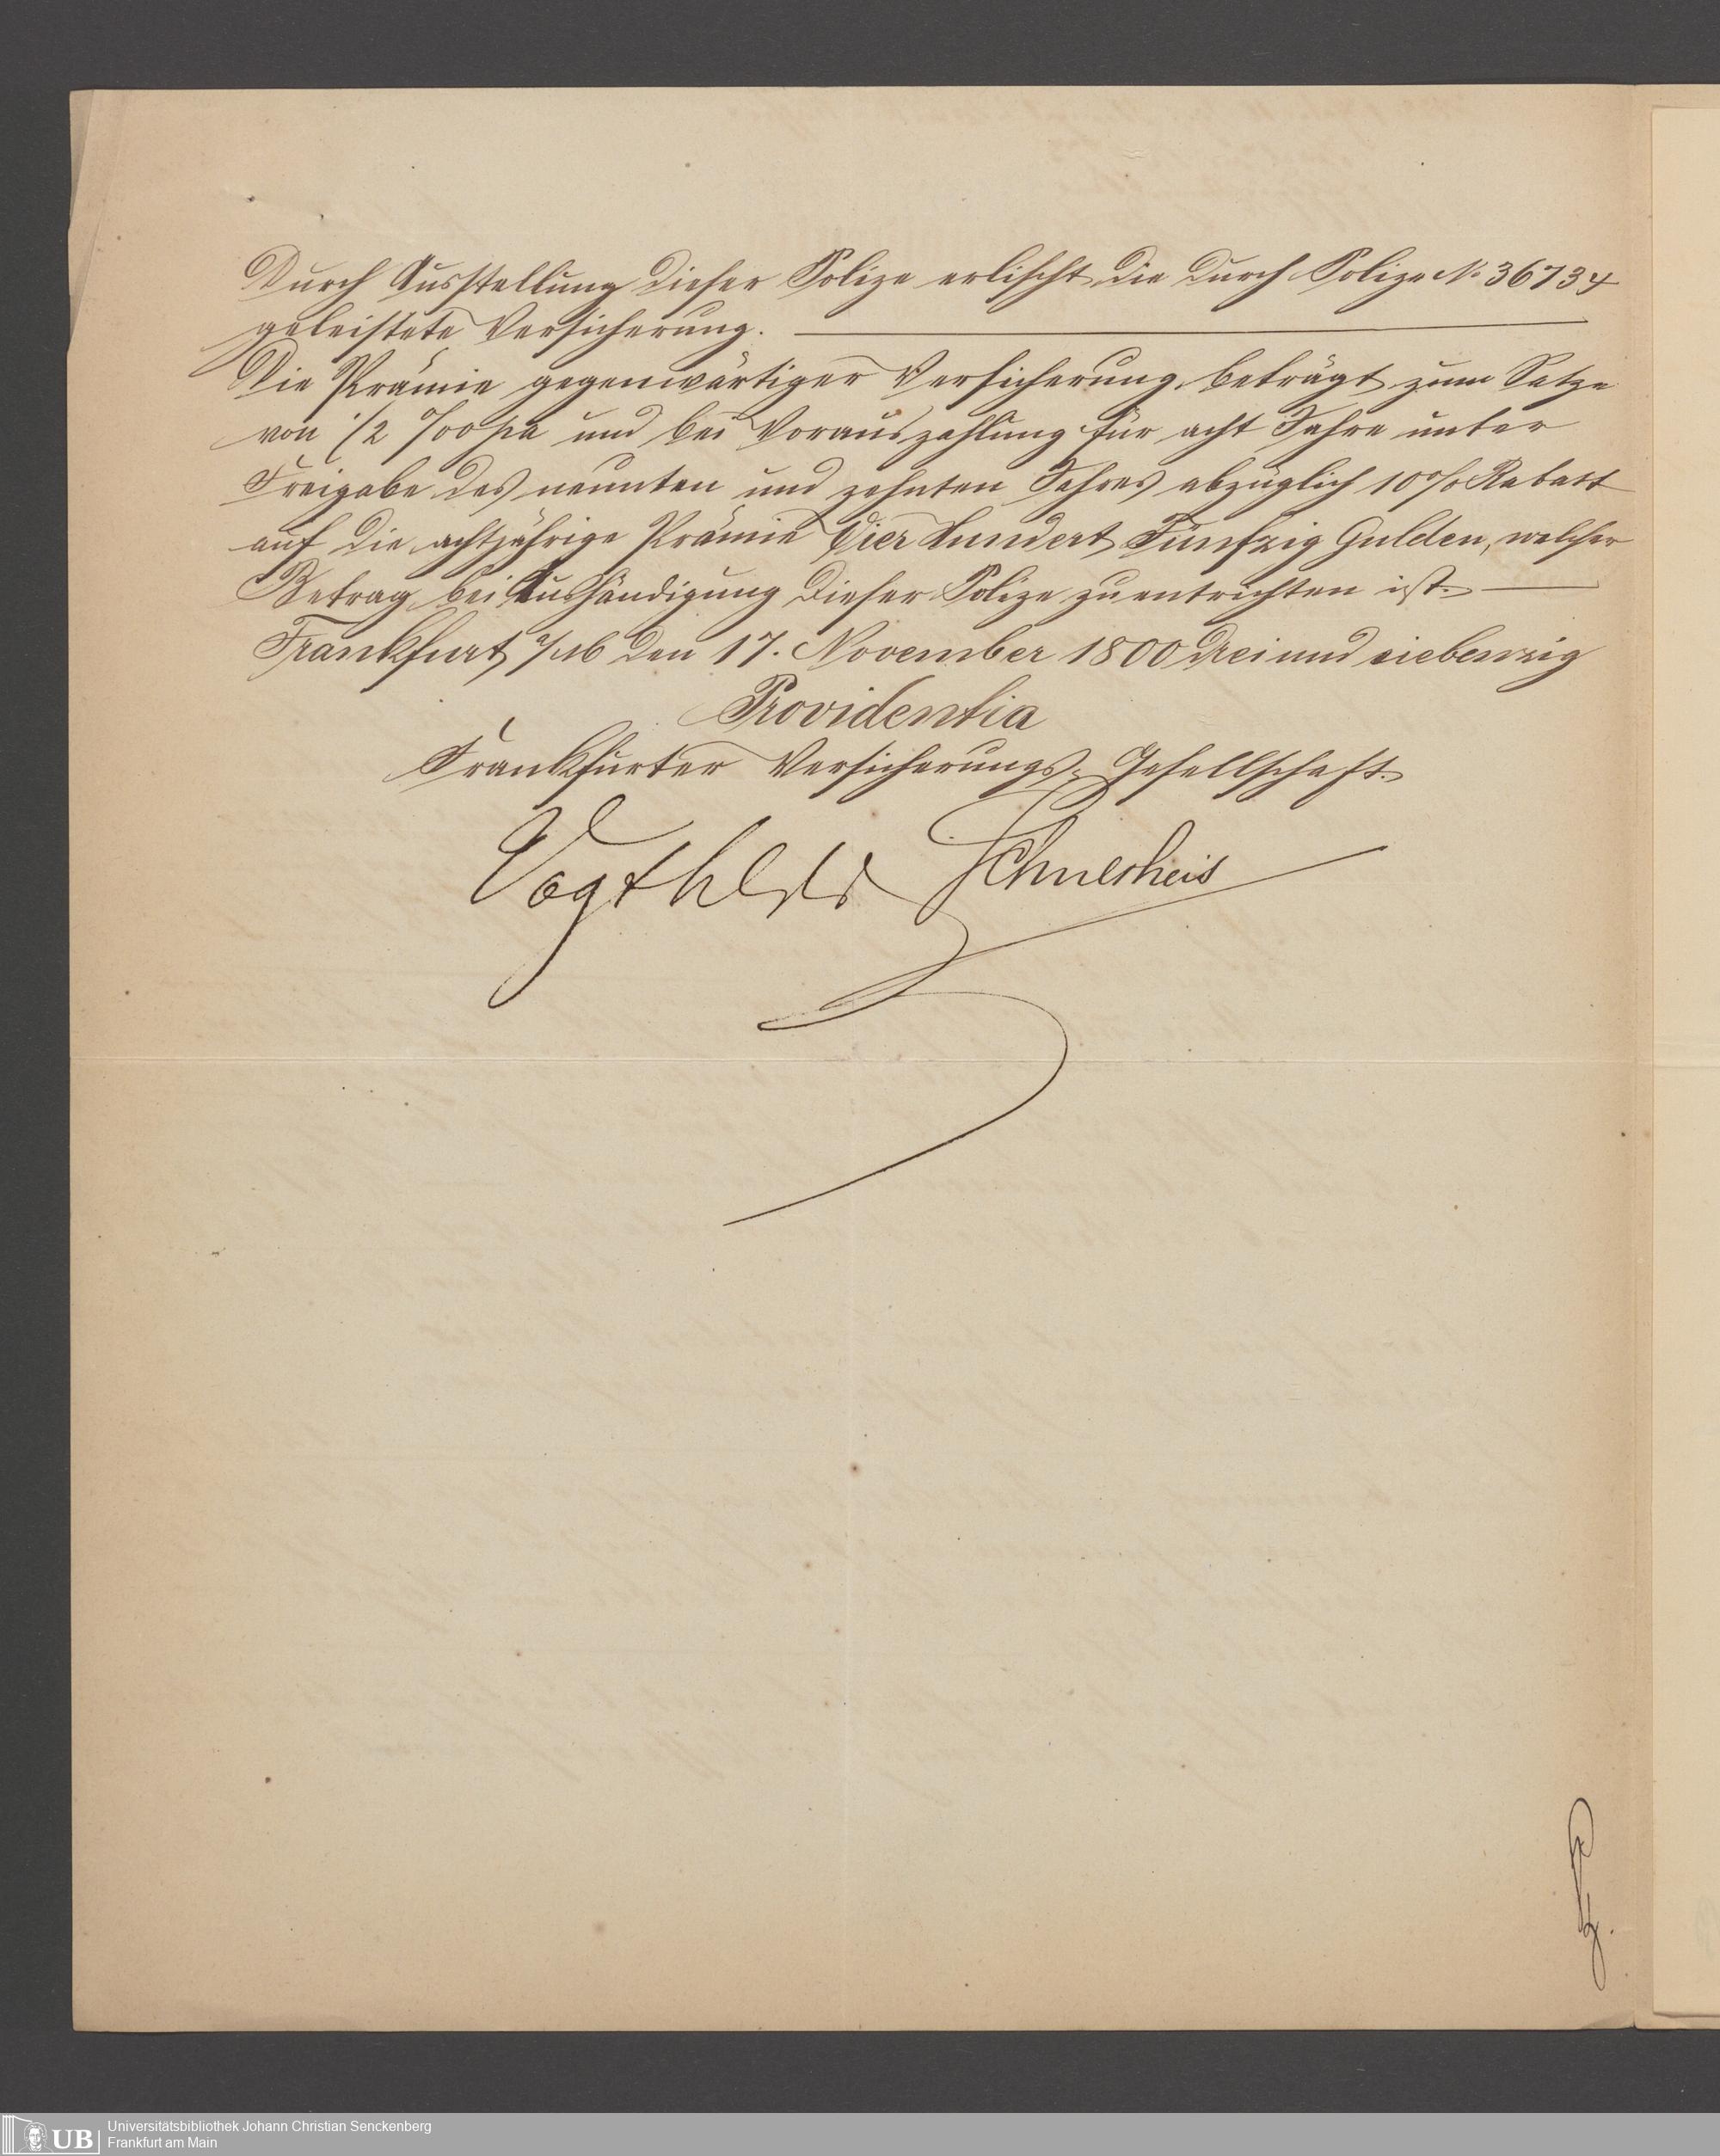 Durch Ausstellung dieser Polize erlischt die durch Polize No 36734
geleistete Versicherung.
Die Prämie gegenwärtiger Versicherung beträgt zum Satze
von 1/2 ‰ pa und bei Vorauszahlung für acht Jahre unter
Freigabe des neunten und zehnten Jahres abzüglich 10% Rabatt
auf die achtjährige Prämie Vier Hundert Fünfzig Gulden, welcher
Betrag bei Aushändigung dieser Polize zu entrichten ist.
Frankfurt a/M den 17. November 1800 drei und siebenzig
Providentia
Frankfurter Versicherungs-Gesellschaft.
UB
Universitätsbibliothek Johann Christian Senckenberg
Frankfurt am Main